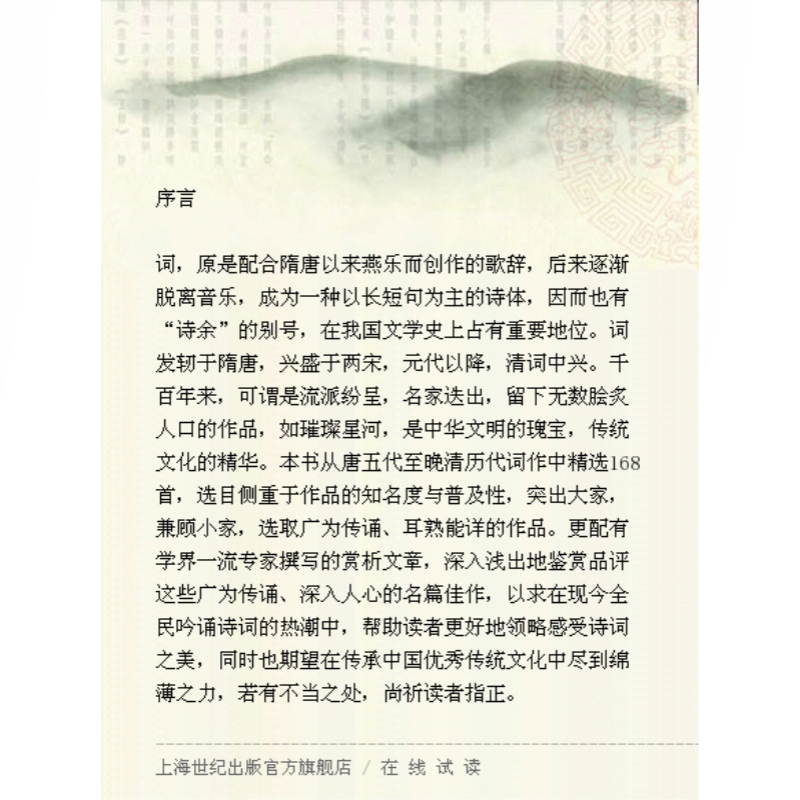 序言
词，原是配合隋唐以来燕乐而创作的歌辞，后来逐渐
脱离音乐，成为一种以长短句为主的诗体，因而也有
“诗余”的别号，在我国文学史上占有重要地位。词
发轫于隋唐，兴盛于两宋，元代以降，清词中兴。千
百年来，可谓是流派纷呈，名家迭出，留下无数脍炙
人口的作品，如璀璨星河，是中华文明的瑰宝，传统
文化的精华。本书从唐五代至晚清历代词作中精选168
首，选目侧重于作品的知名度与普及性，突出大家，
兼顾小家，选取广为传诵、耳熟能详的作品。更配有
学界一流专家撰写的赏析文章，深入浅出地鉴赏品评
这些广为传诵、深入人心的名篇佳作，以求在现今全
民吟诵诗词的热潮中，帮助读者更好地领略感受诗词
之美，同时也期望在传承中国优秀传统文化中尽到绵
薄之力，若有不当之处，尚祈读者指正。
上海世纪出版官方旗舰店 / 在 线 试 读